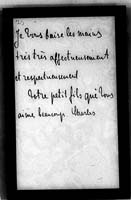 Je vous baise les mains
très très affectueusement
et respectueusement
Votre petit fils qui vous
aime beaucoup. Charles